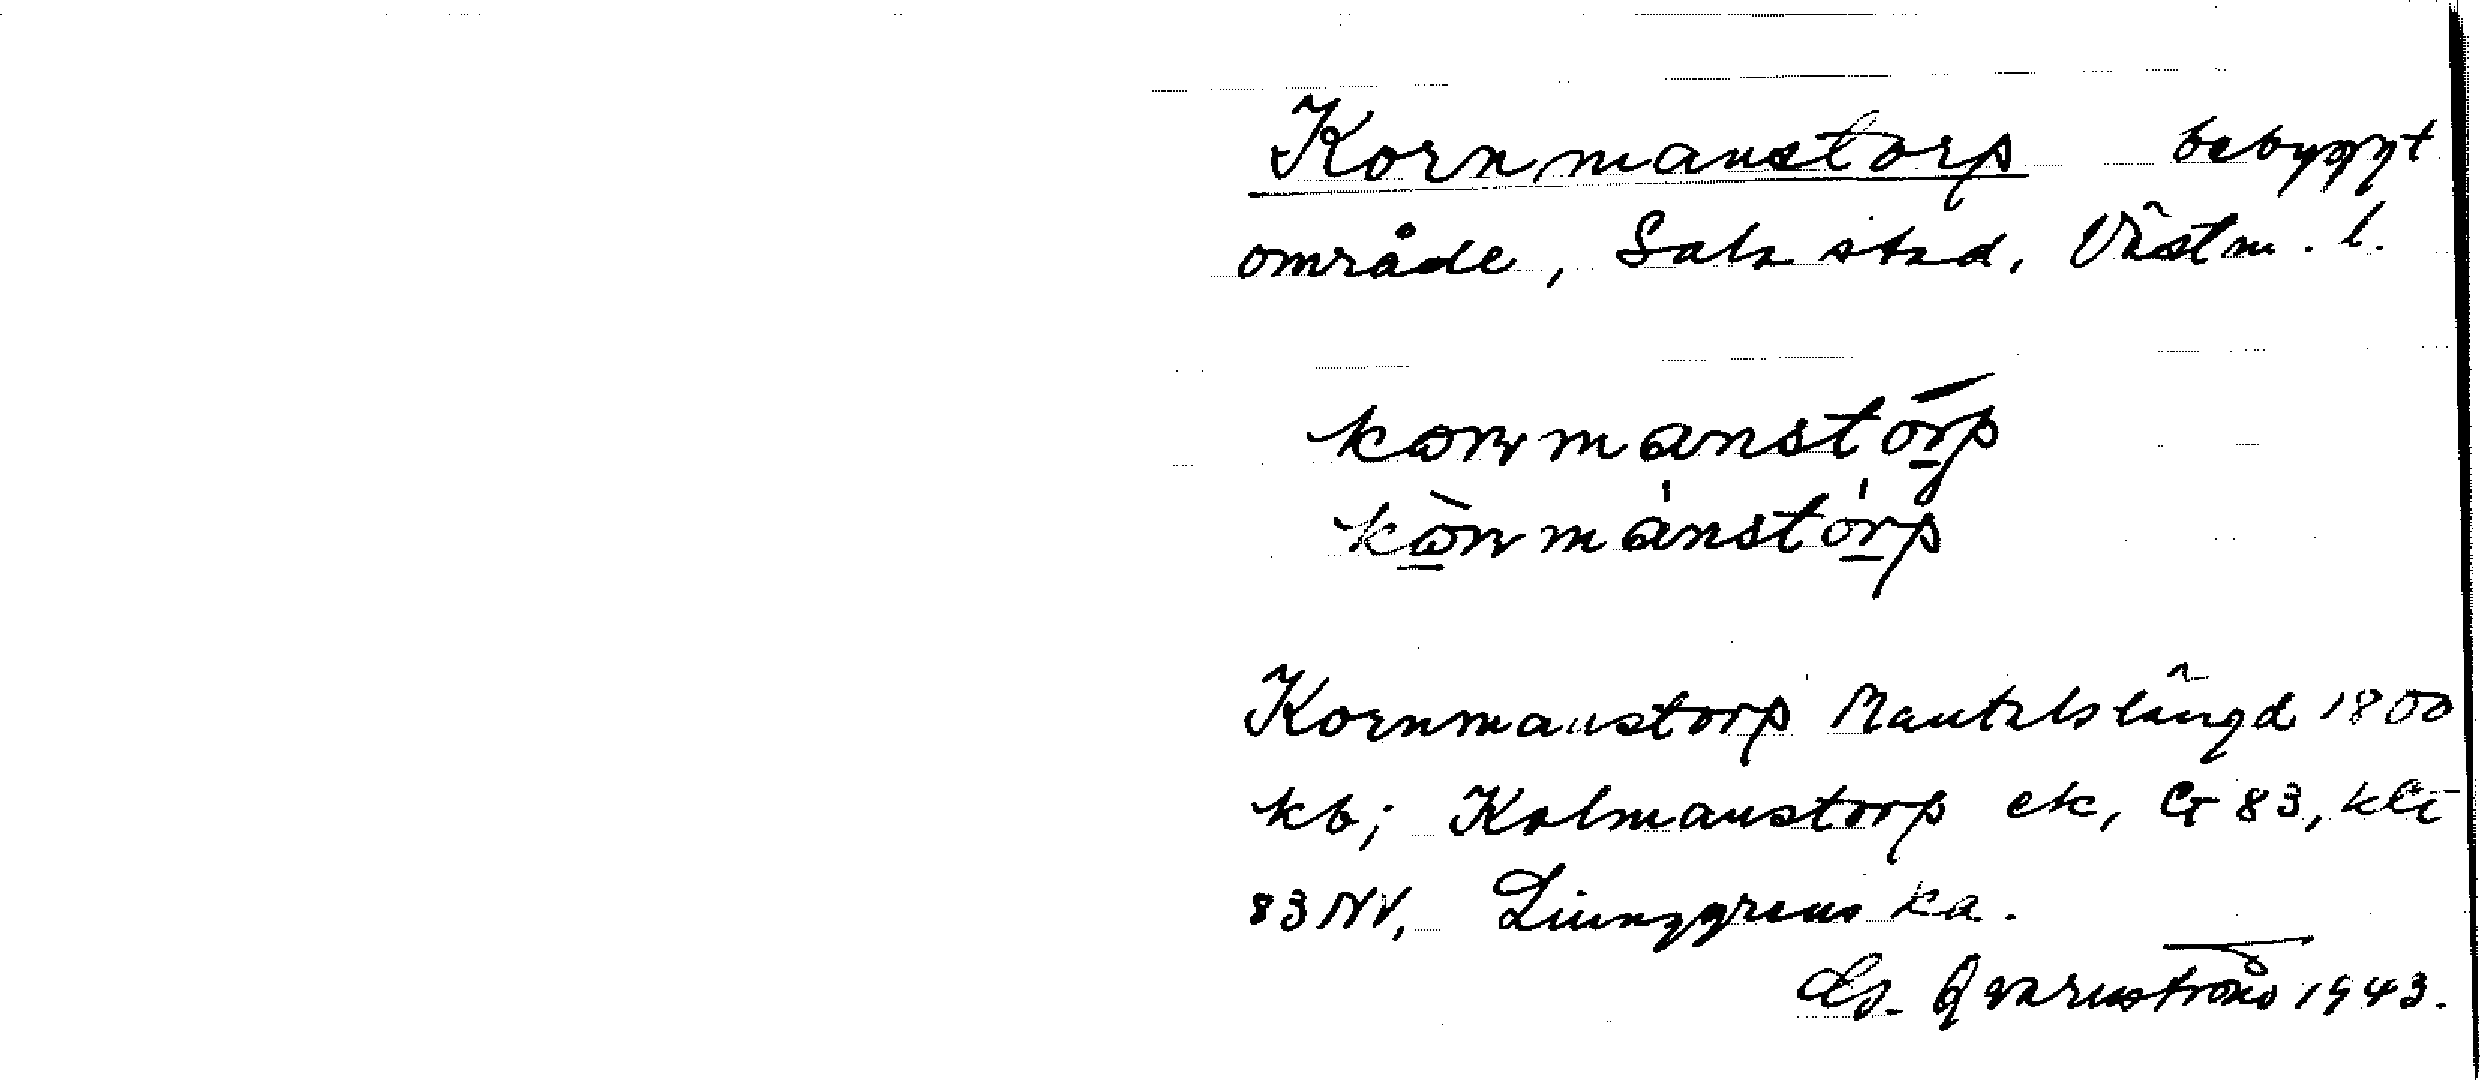 Kornmanstorp bebyggt
område, Sala stad, Västm. l.
kornmanstórp
kòrnmanstórp
Kornmanstorp Mantalslängd 1800
kb; Kolmanstorp ek, G 83, kli
83 NV, Liunggrens ka.
Qvarnström 1943.